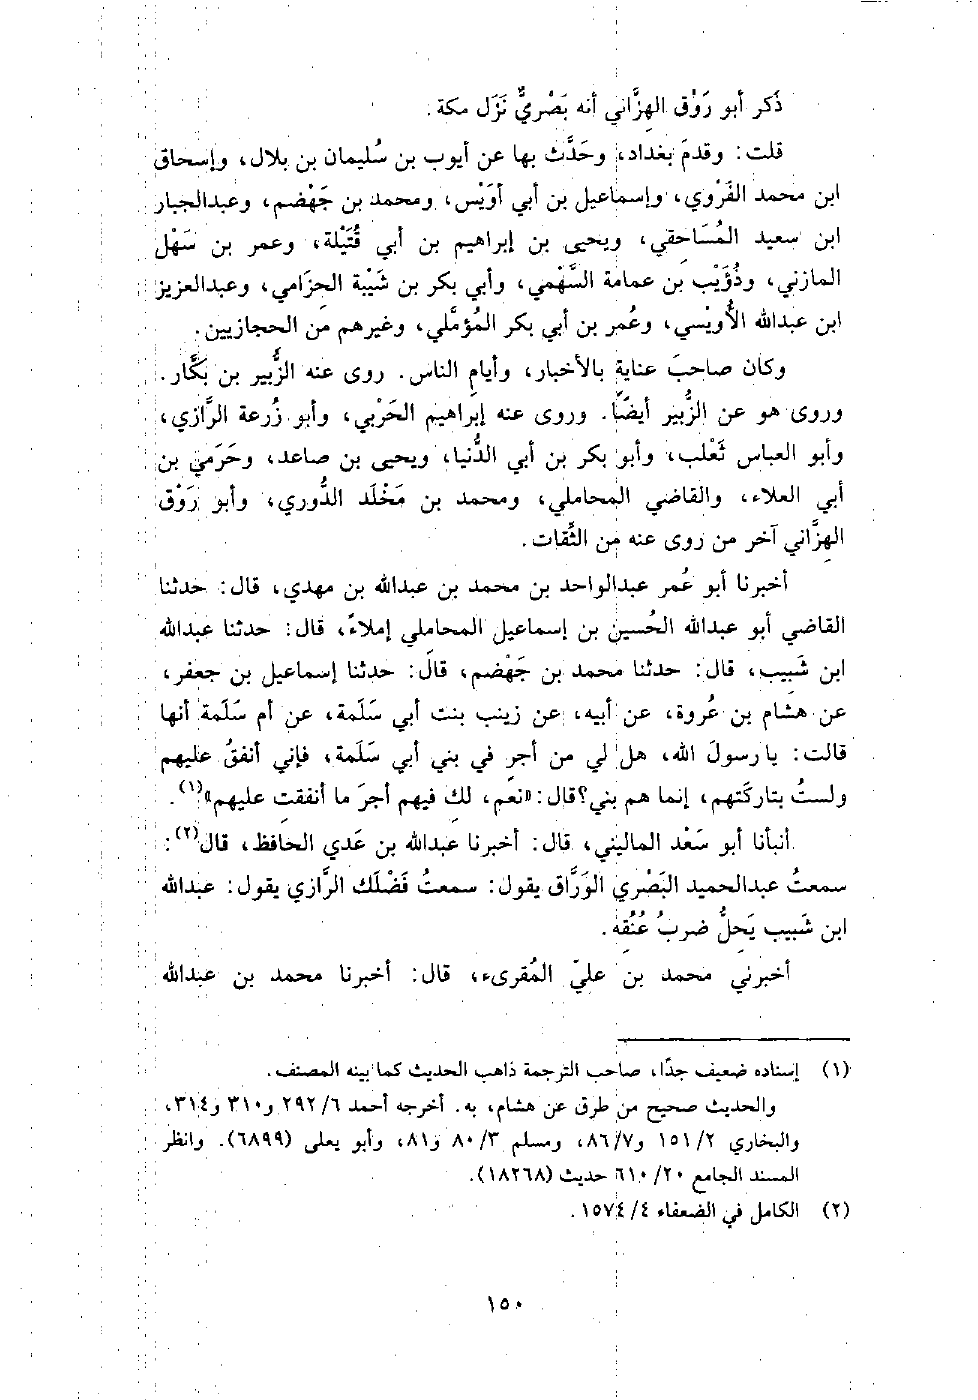 ذَكر أبو رَوْق الهِزَّاني أنه بَصْريٌّ نَزَل مكة.
قلت: وقدمَ بغداد، وحَدَّث بها عن أيوب بن سُليمان بن بلال، وإسحاق
ابن محمد الفَرْوي، وإسماعيل بن أبي أوَيْس، ومحمد بن جَهْضم، وعبدالجبار
ابن سعيد المُسَاحِقي، ويحيى بن إبراهيم بن أبي قُتَيْلة، وعمر بن سَهْل
المازني، وذُؤَيْب بن عمامة السَّهْمي، وأبي بكر بن شَيْبة الحِزَامي، وعبدالعزيز
ابن عبدالله الأُويْسي، وعُمر بن أبي بكر المُؤمَّلي، وغيرهم من الحجازيين.
وكان صاحبَ عناية بالأخبار، وأيام الناس. روى عنه الزُّبير بن بَكَّار.
وروى هو عن الزُّبير أيضًا. وروى عنه إبراهيم الحَرْبي، وأبو زُرعة الرَّازي،
وأبو العباس ثَعْلب، وأبو بكر بن أبي الدُّنيا، ويحيى بن صاعد، وحَرَمي بن
أبي العلاء، والقاضي المحاملي، ومحمد بن مَخْلَد الدُّوري، وأبو رَوْق
الهِزَّاني آخر من روى عنه من الثِّقات.
أخبرنا أبو عُمر عبدالواحد بن محمد بن عبدالله بن مهدي، قال: حدثنا
القاضي أبو عبدالله الحُسين بن إسماعيل المحاملي إملاءً، قال: حدثنا عبدالله
ابن شَبِيب، قال: حدثنا محمد بن جَهْضم، قال: حدثنا إسماعيل بن جعفر،
عن هشام بن عُروة، عن أبيه، عن زينب بنت أبي سَلَمة، عن أم سَلَمة أنها
قالت: يا رسولَ الله، هل لي من أجر في بني أبي سَلَمة، فإني أنفقُ عليهم
ولستُ بتاركَتهم، إنما هم بني؟ قال: «نعم، لك فيهم أجرَ ما أنفقتِ عليهم»(١).
أنبأنا أبو سَعْد الماليني، قال: أخبرنا عبدالله بن عَدي الحافظ، قال(٢):
سمعتُ عبدالحميد البَصْري الوَرَّاق يقول: سمعتُ فَضْلَك الرَّازي يقول: عبدالله
ابن شَبيب يَحِلُّ ضربُ عُنُقه.
أخبرني محمد بن عليّ المُقرىء، قال: أخبرنا محمد بن عبدالله
(١) إسناده ضعيف جدًا، صاحب الترجمة ذاهب الحديث كما بينه المصنف.
والحديث صحيح من طرق عن هشام، به. أخرجه أحمد ٦/ ٢٩٢ و٣١٠ و٣١٤،
والبخاري ٢/ ١٥١ و٧/ ٨٦، ومسلم ٣/ ٨٠ و٨١، وأبو يعلى (٦٨٩٩). وانظر
المسند الجامع ٢٠/ ٦١٠ حديث (١٨٢٦٨).
(٢) الكامل في الضعفاء ٤/ ١٥٧٤.
١٥٠